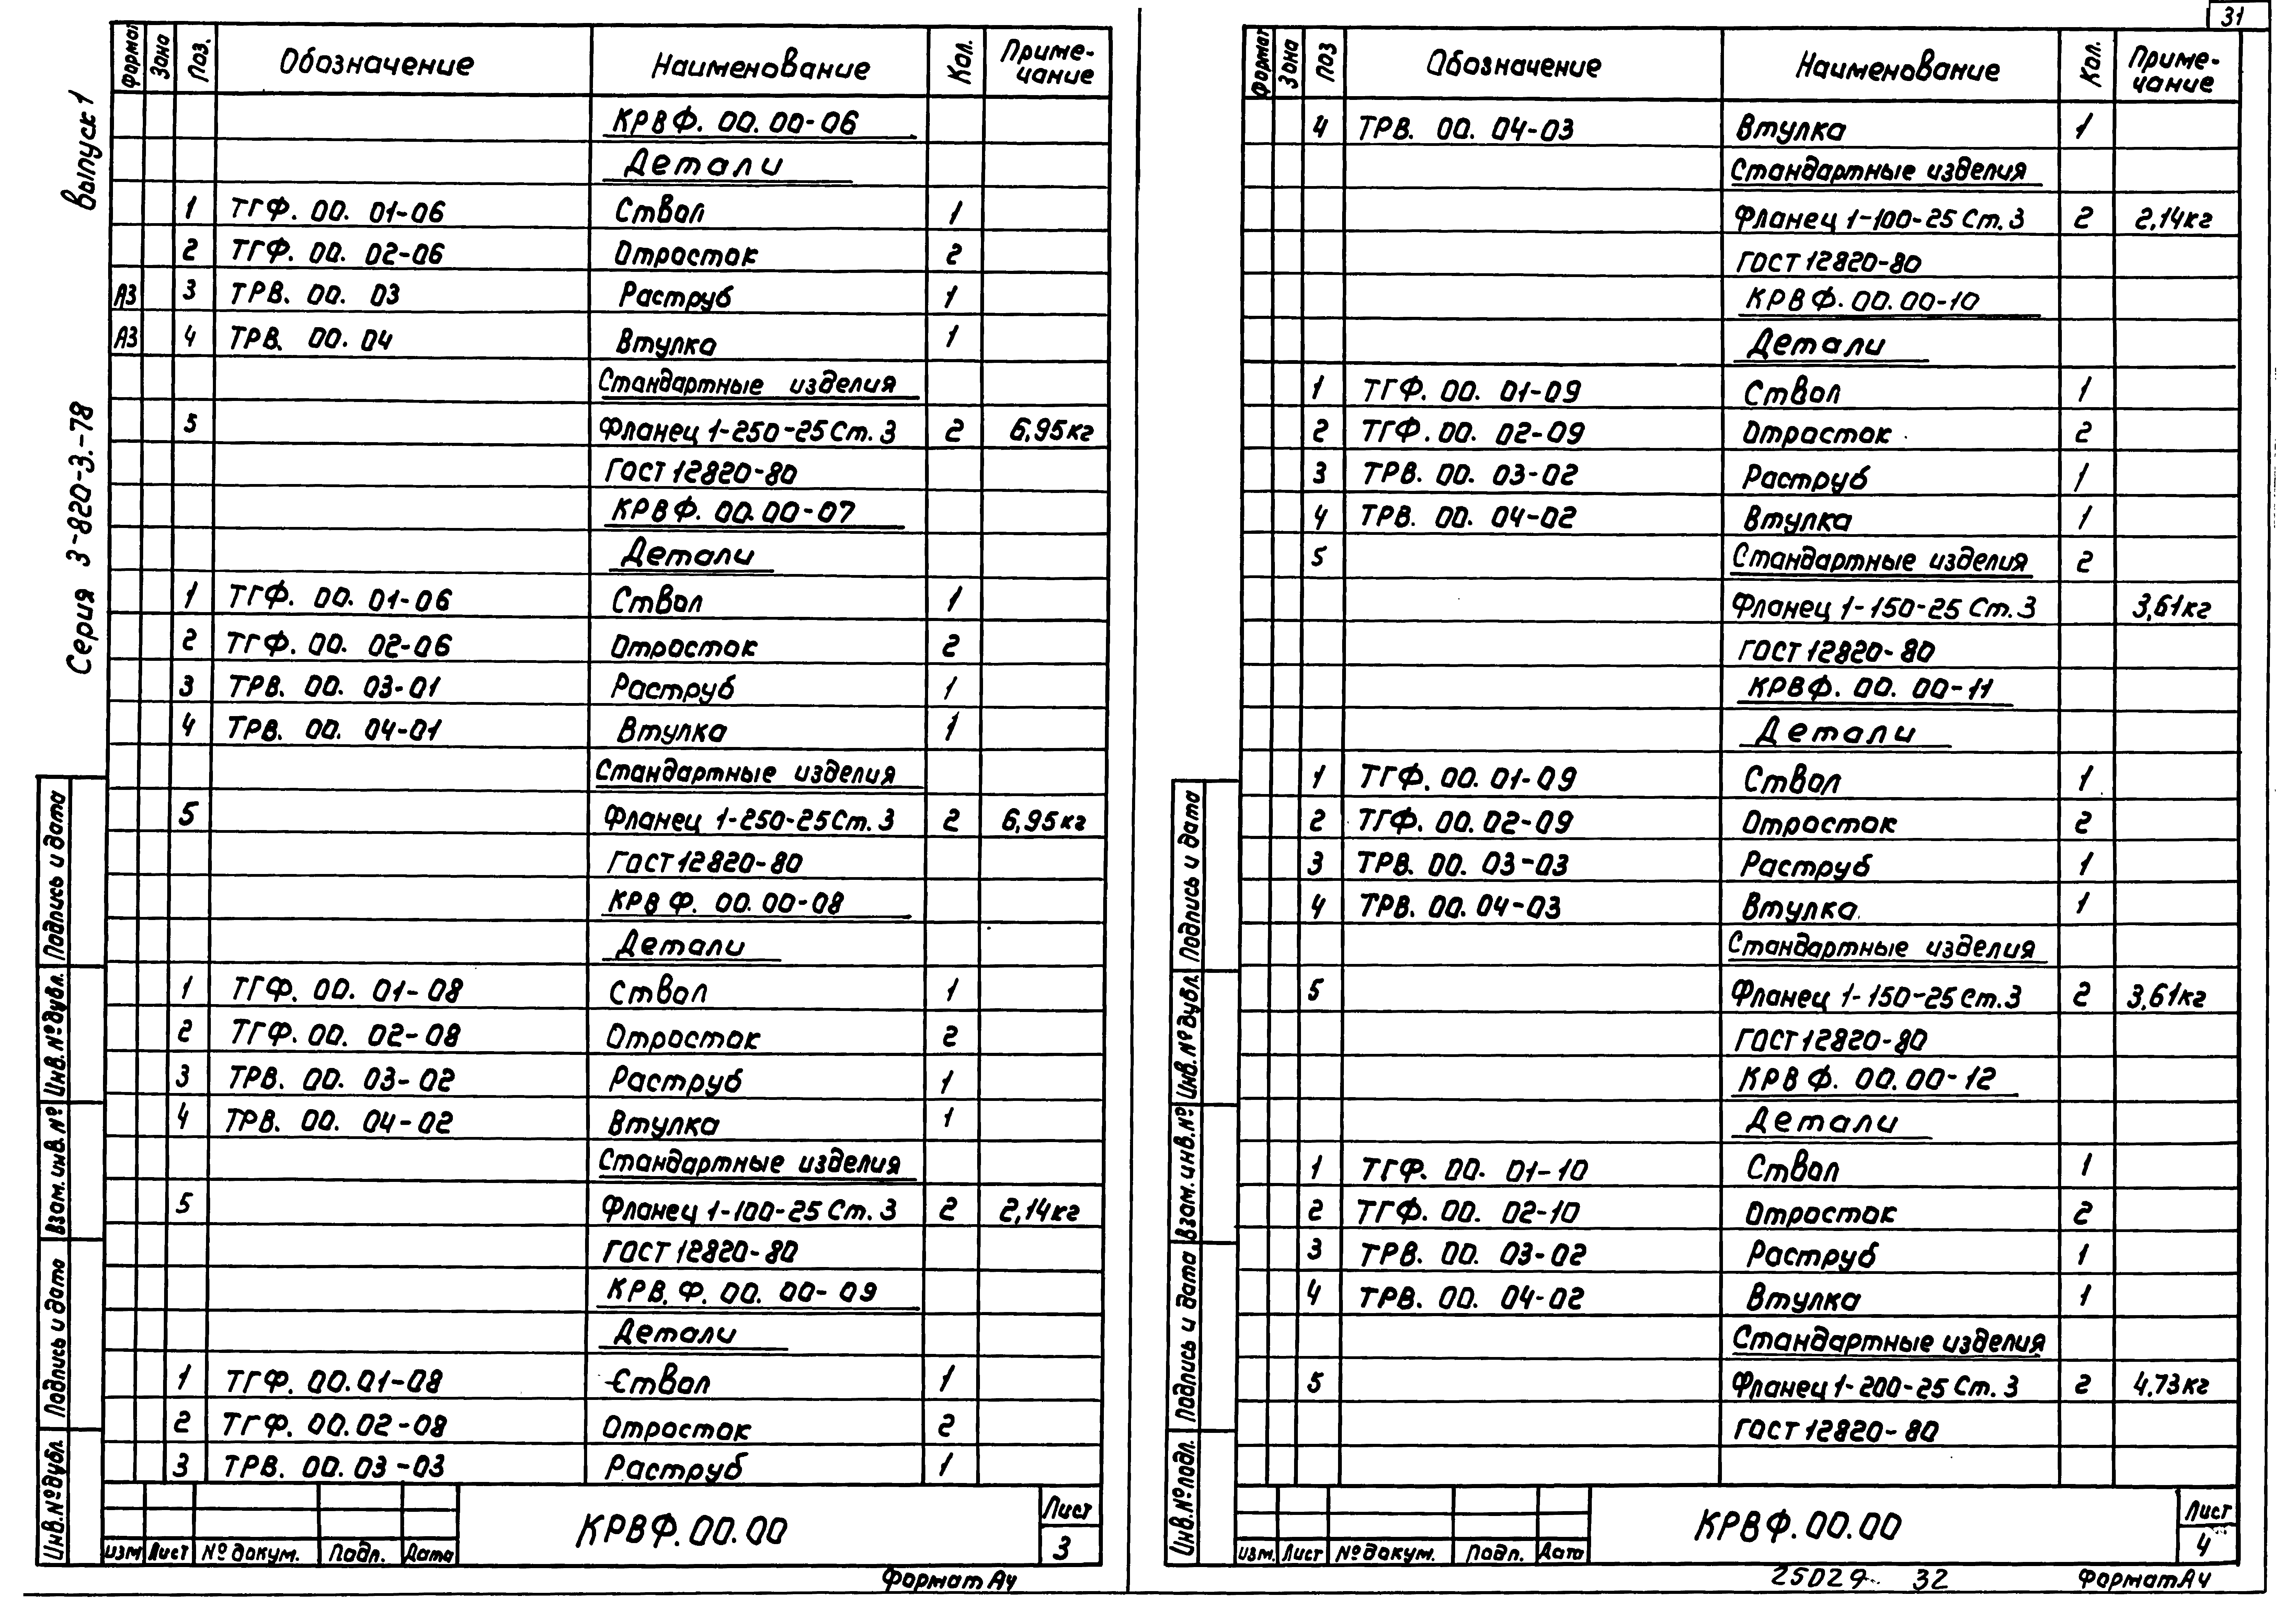 31
Выпуск 1
Серия 3-820-3.-78
Формат Зона Поз. Обозначение Наименование Кол. Приме-
чание
КРВФ.00.00-06
Детали
1 ТГФ.00.01-06 Ствол 1
2 ТГФ.00.02-06 Отросток 2
А3 3 ТРВ.00.03 Раструб 1
А3 4 ТРВ.00.04 Втулка 1
Стандартные изделия
5 Фланец 1-250-25 Ст.3 2 6,95кг
ГОСТ 12820-80
КРВФ.00.00-07
Детали
1 ТГФ.00.01-06 Ствол 1
2 ТГФ.00.02-06 Отросток 2
3 ТРВ.00.03-01 Раструб 1
4 ТРВ.00.04-01 Втулка 1
Стандартные изделия
5 Фланец 1-250-25 Ст.3 2 6,95кг
ГОСТ 12820-80
КРВФ.00.00-08
Детали
1 ТГФ.00.01-08 Ствол 1
2 ТГФ.00.02-08 Отросток 2
3 ТРВ.00.03-02 Раструб 1
4 ТРВ.00.04-02 Втулка 1
Стандартные изделия
5 Фланец 1-100-25 Ст.3 2 2,14кг
ГОСТ 12820-80
КРВ.Ф.00.00-09
Детали
1 ТГФ.00.01-08 Ствол 1
2 ТГФ.00.02-08 Отросток 2
3 ТРВ.00.03-03 Раструб 1
Подпись и дата
Инв.№дубл.
Взам.инв.№
Подпись и дата
Инв.№дубл.
изм Лист №докум. Подп. Дата
КРВФ.00.00
Лист
3
Формат А4
Формат Зона Поз Обозначение Наименование Кол. Приме-
чание
4 ТРВ.00.04-03 Втулка 1
Стандартные изделия
Фланец 1-100-25 Ст.3 2 2,14кг
ГОСТ 12820-80
КРВФ.00.00-10
Детали
1 ТГФ.00.01-09 Ствол 1
2 ТГФ.00.02-09 Отросток 2
3 ТРВ.00.03-02 Раструб 1
4 ТРВ.00.04-02 Втулка 1
5 Стандартные изделия 2
Фланец 1-150-25 Ст.3 3,61кг
ГОСТ 12820-80
КРВФ.00.00-11
Детали
1 ТГФ.00.01-09 Ствол 1
2 ТГФ.00.02-09 Отросток 2
3 ТРВ.00.03-03 Раструб 1
4 ТРВ.00.04-03 Втулка 1
Стандартные изделия
5 Фланец 1-150-25 Ст.3 2 3,61кг
ГОСТ 12820-80
КРВФ.00.00-12
Детали
1 ТГФ.00.01-10 Ствол 1
2 ТГФ.00.02-10 Отросток 2
3 ТРВ.00.03-02 Раструб 1
4 ТРВ.00.04-02 Втулка 1
Стандартные изделия
5 Фланец 1-200-25 Ст.3 2 4,73кг
ГОСТ 12820-80
Подпись и дата
Инв.№дубл.
Взам.инв.№
Подпись и дата
Инв.№подл.
изм. Лист №докум. Подп. Дата
КРВФ.00.00
Лист
4
25029 32
Формат А4